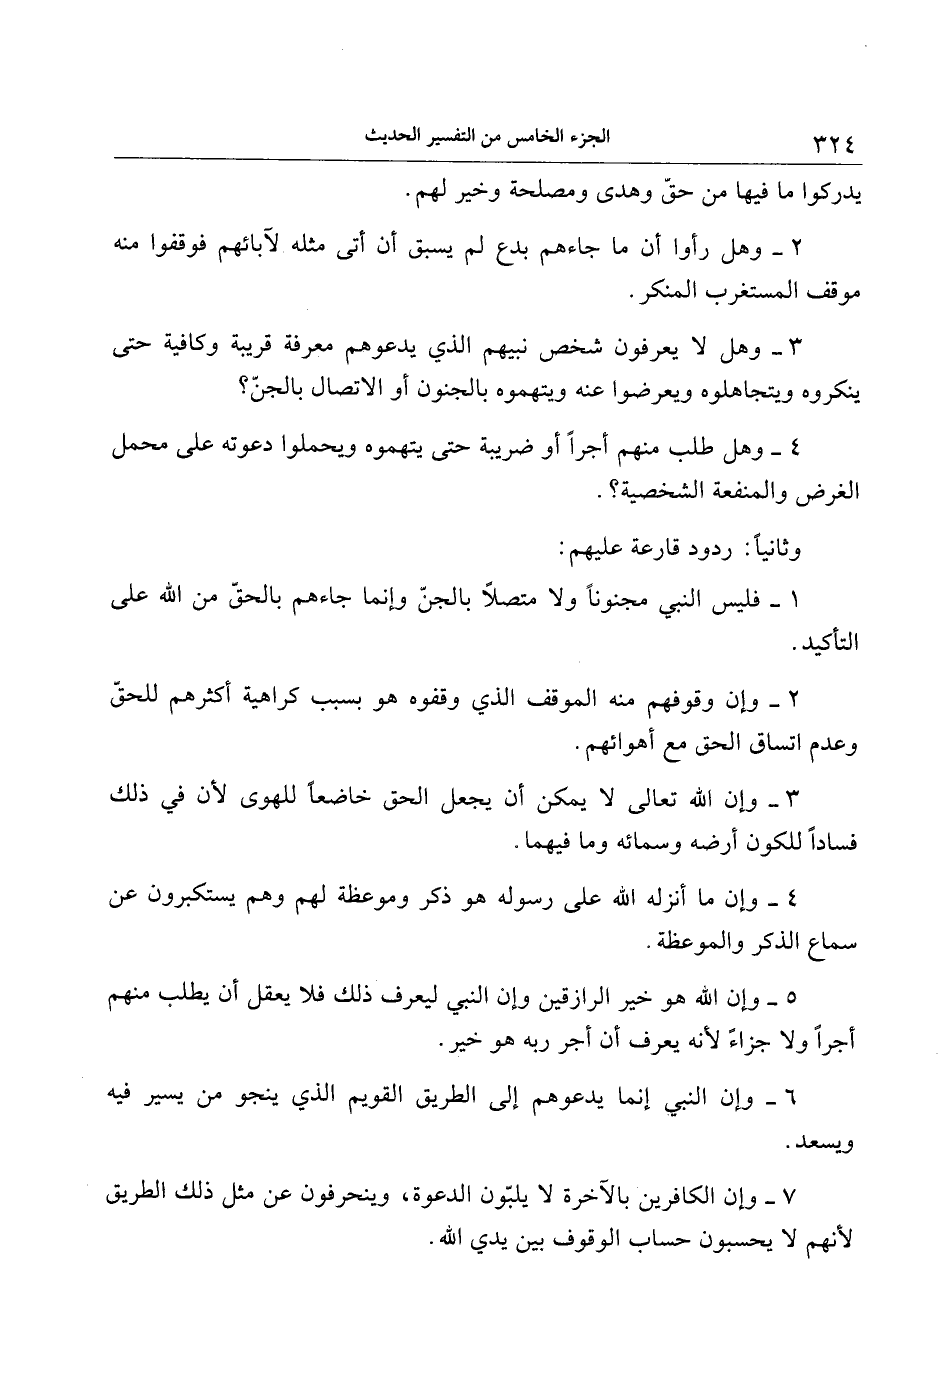 ٣٢٤
الجزء الخامس من التفسير الحديث
يدركوا ما فيها من حقّ وهدى ومصلحة وخير لهم.
٢ ـ وهل رأوا أن ما جاءهم بدع لم يسبق أن أتى مثله لآبائهم فوقفوا منه
موقف المستغرب المنكر.
٣ ـ وهل لا يعرفون شخص نبيهم الذي يدعوهم معرفة قريبة وكافية حتى
ينكروه ويتجاهلوه ويعرضوا عنه ويتهموه بالجنون أو الاتصال بالجنّ؟
٤ ـ وهل طلب منهم أجراً أو ضريبة حتى يتهموه ويحملوا دعوته على محمل
الغرض والمنفعة الشخصية؟.
وثانياً: ردود قارعة عليهم:
١ ـ فليس النبي مجنوناً ولا متصلاً بالجنّ وإنما جاءهم بالحقّ من الله على
التأكيد.
٢ ـ وإن وقوفهم منه الموقف الذي وقفوه هو بسبب كراهية أكثرهم للحقّ
وعدم اتساق الحق مع أهوائهم.
٣ ـ وإن الله تعالى لا يمكن أن يجعل الحق خاضعاً للهوى لأن في ذلك
فساداً للكون أرضه وسمائه وما فيهما.
٤ ـ وإن ما أنزله الله على رسوله هو ذكر وموعظة لهم وهم يستكبرون عن
سماع الذكر والموعظة.
٥ ـ وإن الله هو خير الرازقين وإن النبي ليعرف ذلك فلا يعقل أن يطلب منهم
أجراً ولا جزاءً لأنه يعرف أن أجر ربه هو خير.
٦ ـ وإن النبي إنما يدعوهم إلى الطريق القويم الذي ينجو من يسير فيه
ويسعد.
٧ ـ وإن الكافرين بالآخرة لا يلبّون الدعوة، وينحرفون عن مثل ذلك الطريق
لأنهم لا يحسبون حساب الوقوف بين يدي الله.